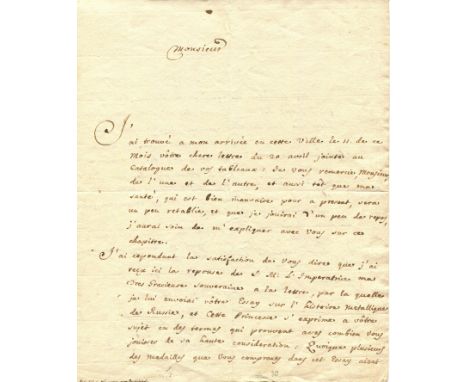 Monsieur
J'ai trouvé a mon arrivée en cette Ville le 11. de ce
Mois vôtre chere lettre du 20 avril jointe au
Catalogue de vos tableaux : Je vous remercie, Monsieur
de l'une et de l'autre, et aussi tôt que ma
santé, qui est bien mauvaise pour a present, sera
un peu retablie, et que je jouirai d'un peu de repos,
j'aurai soin de m'expliquer avec Vous sur ce
chapitre.
J'ai cependant la satisfaction de Vous dire que j'ai
reçû ici la reponse de S. M. L'Imperatrice ma
tres Gracieuse Souveraine a la lettre, par la quelle
je lui envoiai vôtre Essay sur l'histoire Metallique
de Russie, et Cette Princesse s'exprime a vôtre
sujet en des termes qui prouvent assés combien Vous
jouissés de sa haute consideration : Quoique plusieurs
des medailles que Vous comprenés dans cet Essay aient